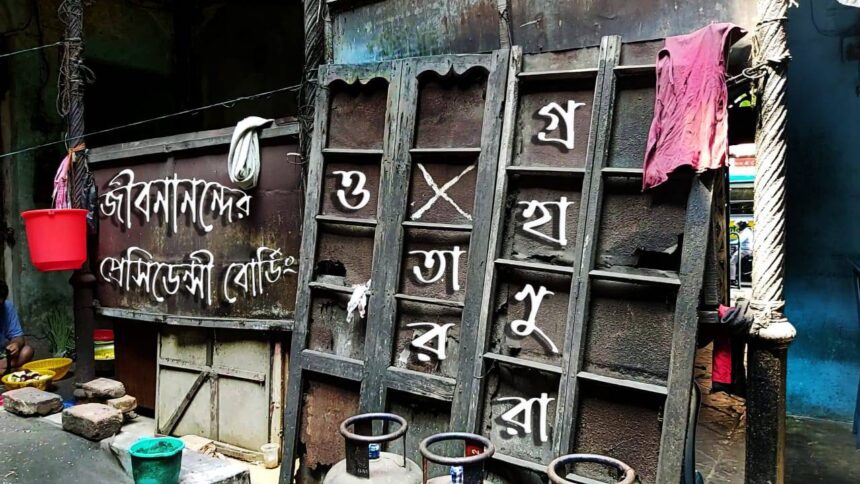 জীবনানন্দের
প্রেসিডেন্সী বোর্ডিং
ও
তা
র
গ্র
হা
ণু
রা